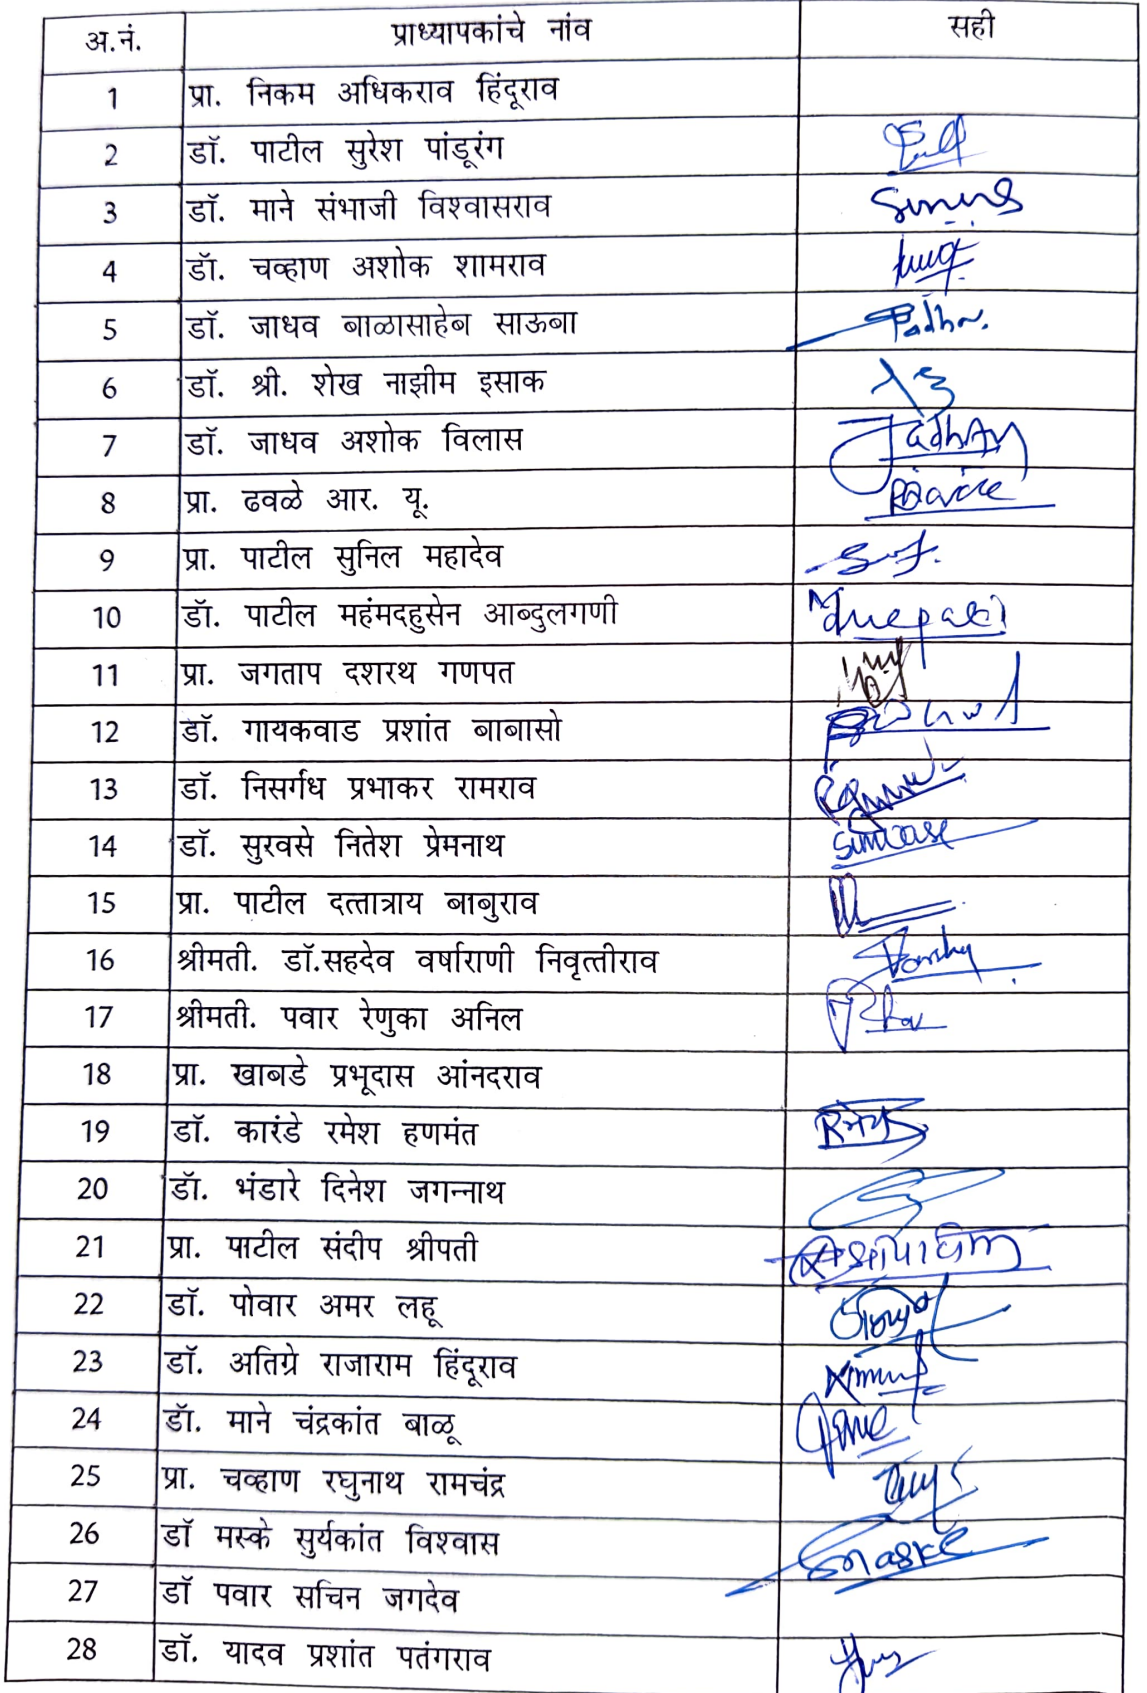 अ.नं. प्राध्यापकांचे नांव सही
1 प्रा. निकम अधिकराव हिंदूराव
2 डॉ. पाटील सुरेश पांडूरंग
3 डॉ. माने संभाजी विश्वासराव
4 डॉ. चव्हाण अशोक शामराव
5 डॉ. जाधव बाळासाहेब साऊबा
6 डॉ. श्री. शेख नाझीम इसाक
7 डॉ. जाधव अशोक विलास Jadhav
8 प्रा. ढवळे आर. यू.
9 प्रा. पाटील सुनिल महादेव
10 डॉ. पाटील महंमदहुसेन आब्दुलगणी
11 प्रा. जगताप दशरथ गणपत
12 डॉ. गायकवाड प्रशांत बाबासो
13 डॉ. निसर्गंध प्रभाकर रामराव
14 डॉ. सुरवसे नितेश प्रेमनाथ
15 प्रा. पाटील दत्तात्राय बाबुराव
16 श्रीमती. डॉ.सहदेव वर्षाराणी निवृत्तीराव
17 श्रीमती. पवार रेणुका अनिल
18 प्रा. खाबडे प्रभूदास आंनदराव
19 डॉ. कारंडे रमेश हणमंत
20 डॉ. भंडारे दिनेश जगन्नाथ
21 प्रा. पाटील संदीप श्रीपती
22 डॉ. पोवार अमर लहू
23 डॉ. अतिग्रे राजाराम हिंदूराव
24 डॉ. माने चंद्रकांत बाळू
25 प्रा. चव्हाण रघुनाथ रामचंद्र
26 डॉ मस्के सुर्यकांत विश्वास Smaske
27 डॉ पवार सचिन जगदेव
28 डॉ. यादव प्रशांत पतंगराव